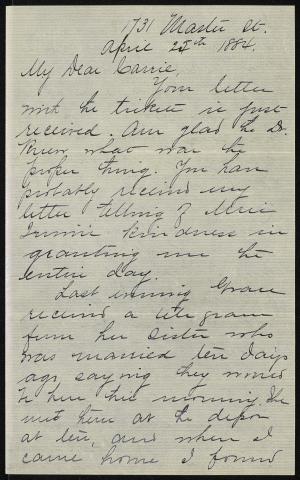 1731 Master St.
April 25th 1884.
My Dear Carrie,
Your letter
with the tickets is just
received. Am glad the Dr.
knew what was the
proper thing. You have
probably received my
letter telling of Miss
Irwin's kindness in
granting me the
entire day.
Last evening Grace
received a telegram
from her sister who
was married ten days
ago saying they would
be here this morning. She
met them at the depot
at ten, and when I
came home I found